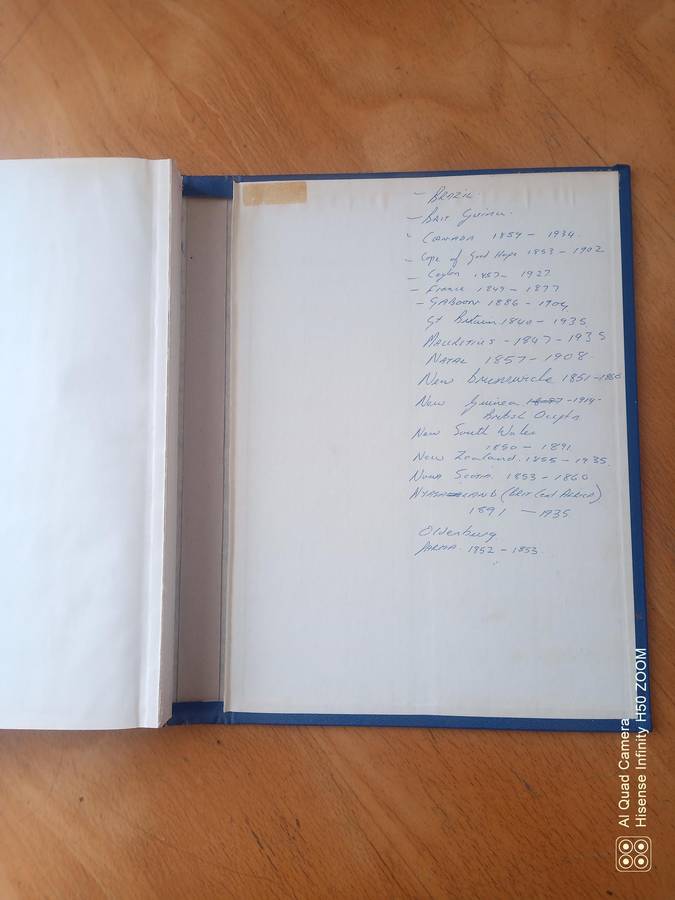 - BRAZIL.
- BRIT Guinea.
- CANADA 1859 - 1934.
- Cape of Good Hope 1853 - 1902
- Ceylon 1857 - 1927
- France 1849 - 1877
- GABOON 1886 - 1904
Gt Britain 1840 - 1935
MAURITIUS - 1847 - 1935
NATAL 1857 - 1908.
New Brunswick 1851 - 1860
New Guinea 1914 -
British Occptn
New South Wales
1850 - 1891
New Zealand. 1855 - 1935.
Nova Scotia 1853 - 1860
NYASALAND (BRIT Cent AFRICA)
1891 - 1935
Oldenburg
PARMA. 1852 - 1853.
AI Quad Camera
Hisense Infinity H50 ZOOM